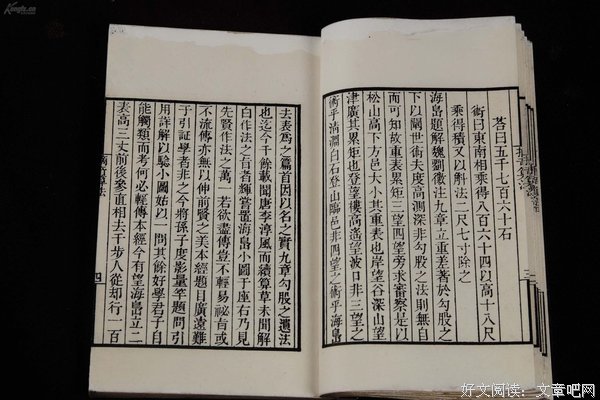 荅曰五千七百六十石
術曰東南相乘得八百六十四以高十八尺
乘得積又以斛法二尺七寸除之
海島題解魏劉徽注九章立重差著於勾股之
下以闡世術夫度高測深非勾股之法則無自
而可知故重表累矩三望四望旁求審察是以
松山高下方邑大小其重表也岸望谷深山望
津廣其累矩三望樓高遙望波口非三望之
術乎淸淵白石登山臨邑非四望之術乎海島
去表爲之篇首因以名之實九章勾股之遺法
也迄今千餘載聞唐李淳風而續算草未聞解
白作法之旨者輝嘗置海島小圖于座右乃見
先賢作法之萬一若欲盡傳豈不輕易秘旨或
不流傳亦無以伸前賢之美本經題目廣遠難
于引証學者非之今將孫子度影量竿題問引
用詳解以驗小圖始以一問其餘好學君子自
能觸類而考何必輕傳本經今有望海島立二
表高三丈前後參直相去千步人從却行一百
四
三
Kongfz.cn
好文阅读：文章吧网